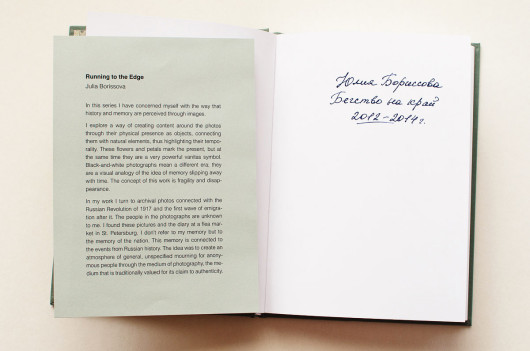 Running to the Edge
Julia Borissova
In this series I have concerned myself with the way that
history and memory are perceived through images.
I explore a way of creating content around the photos
through their physical presence as objects, connecting
them with natural elements, thus highlighting their tempo-
rality. These flowers and petals mark the present, but at
the same time they are a very powerful vanitas symbol.
Black-and-white photographs mean a different era; they
are a visual analogy of the idea of memory slipping away
with time. The concept of this work is fragility and disap-
pearance.
In my work I turn to archival photos connected with the
Russian Revolution of 1917 and the first wave of emigra-
tion after it. The people in the photographs are unknown
to me. I found these pictures and the diary at a flea mar-
ket in St. Petersburg. I don't refer to my memory but to
the memory of the nation. This memory is connected to
the events from Russian history. The idea was to create an
atmosphere of general, unspecified mourning for anony-
mous people through the medium of photography, the me-
dium that is traditionally valued for its claim to authenticity.
Юлия Бориссова
Бегство на край
2012-2014г.